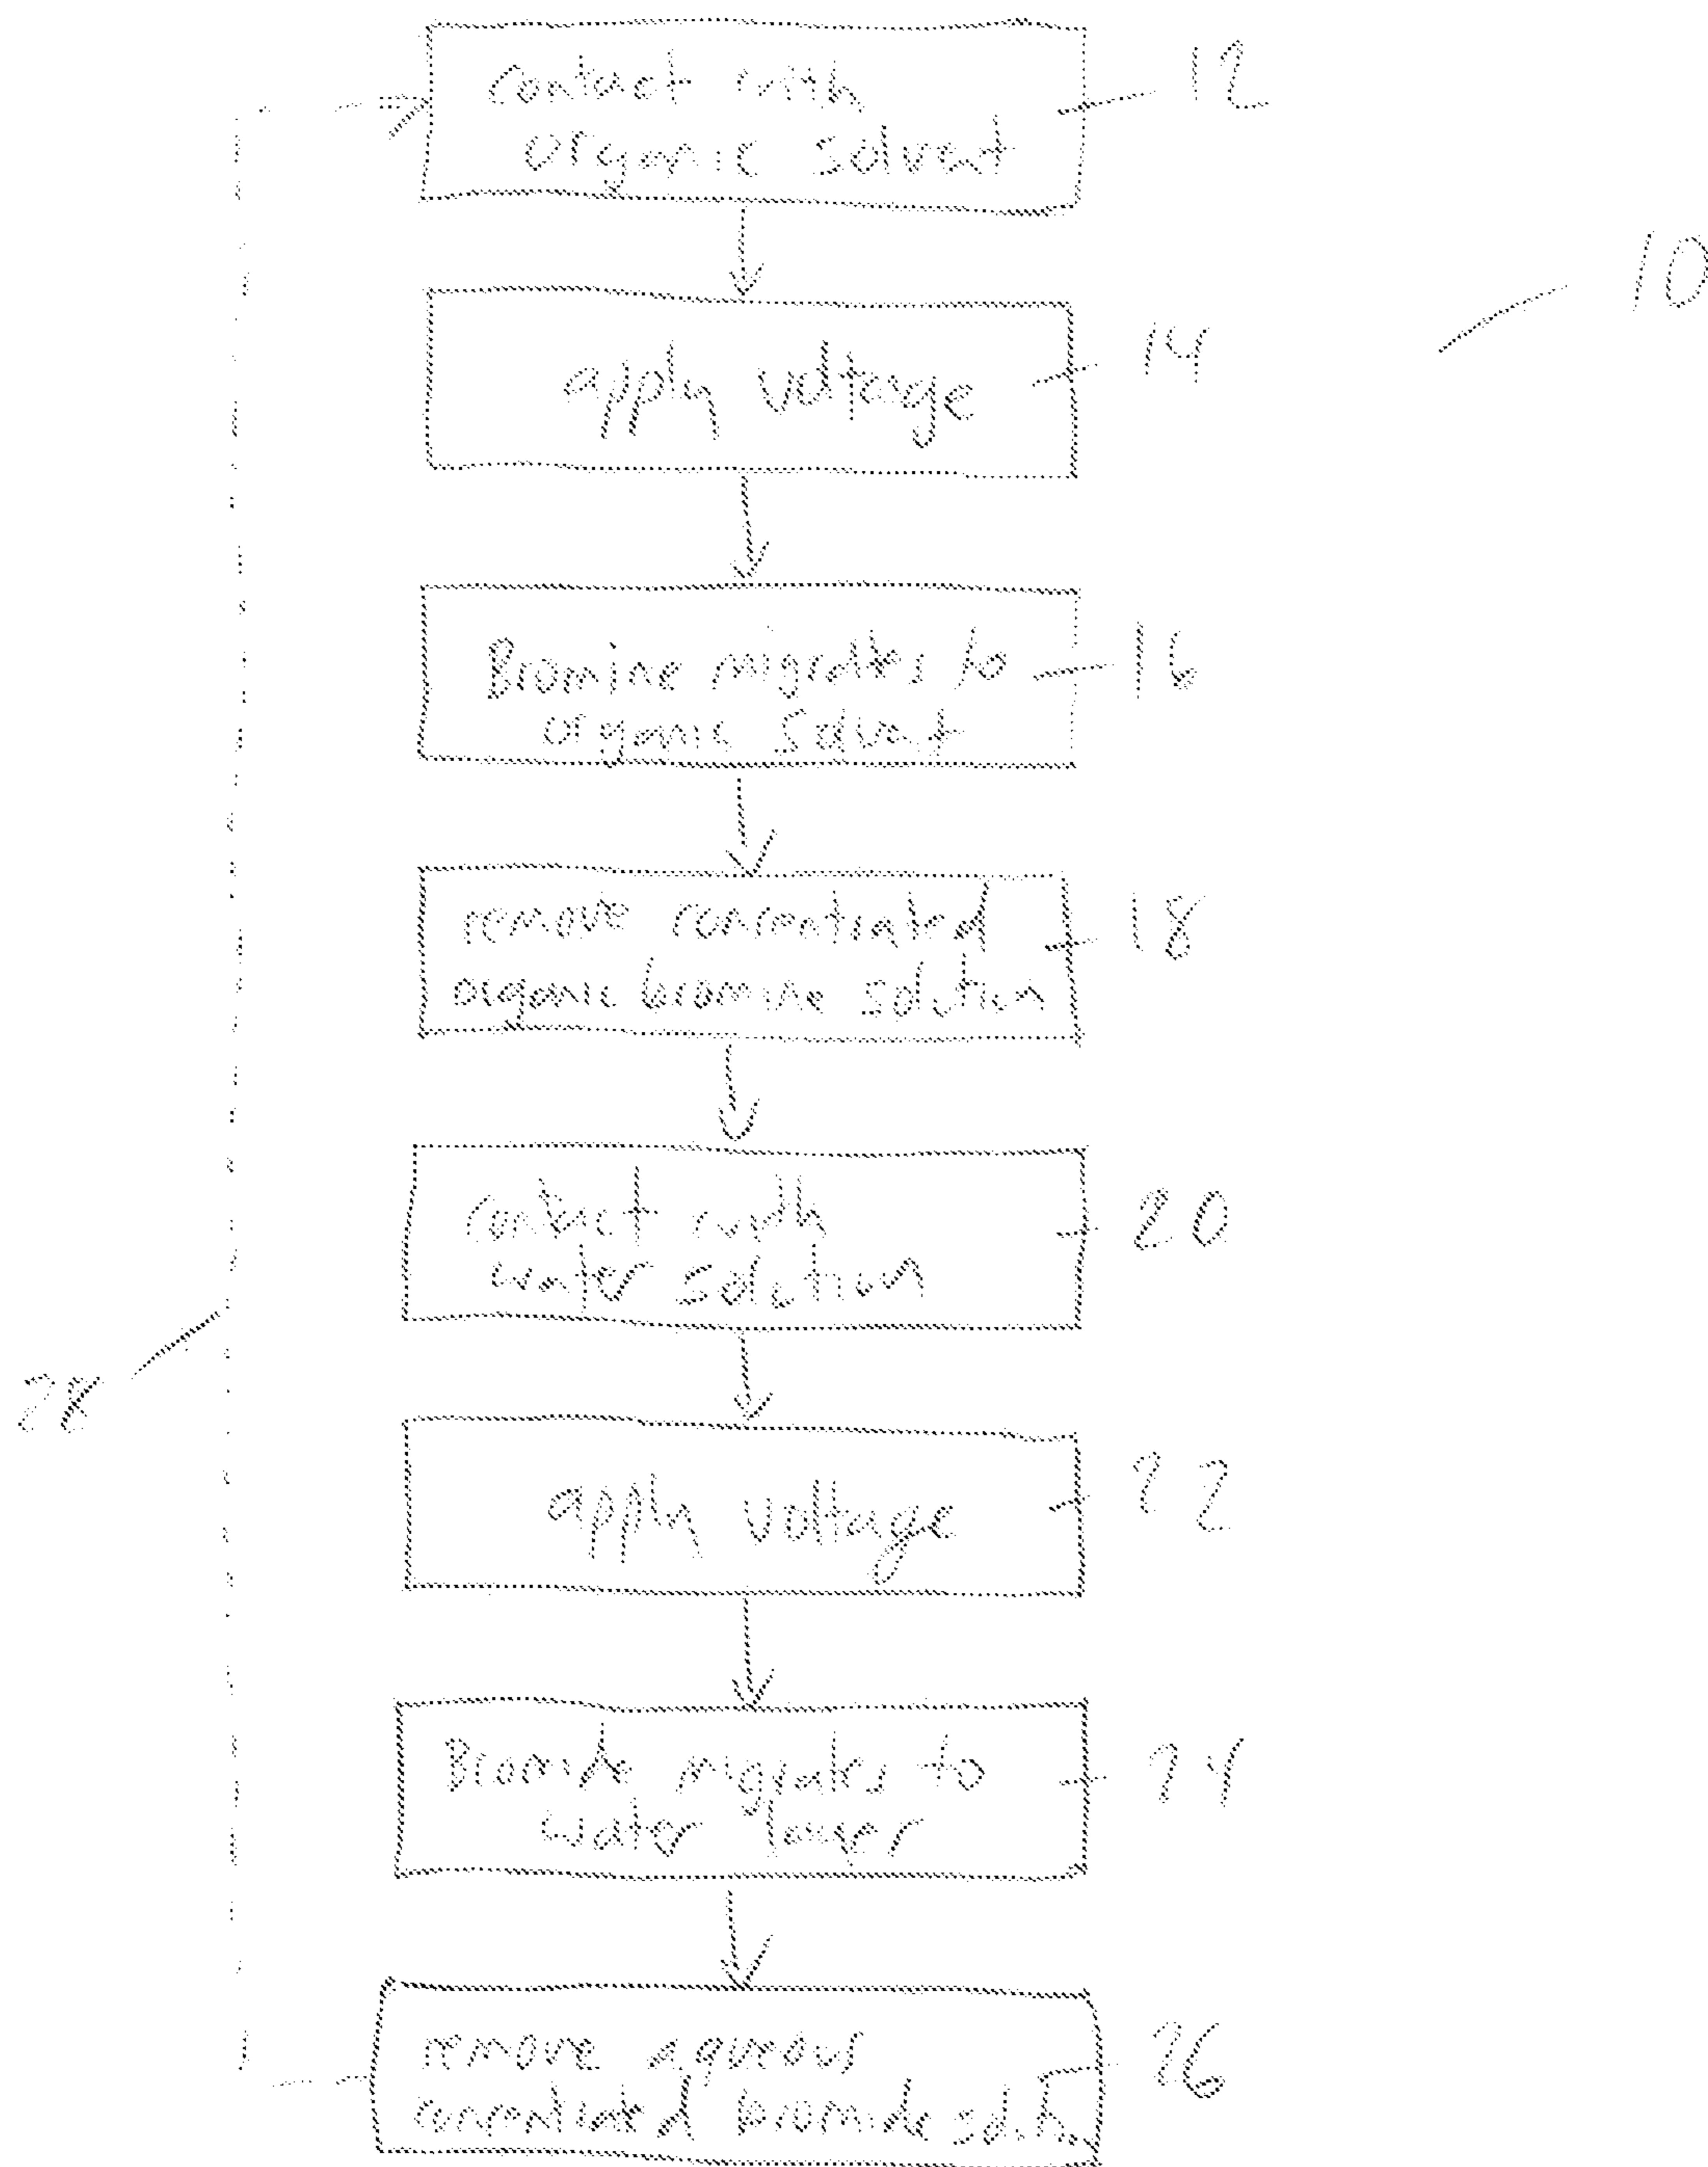 contact with
organic solvent
12
10
apply voltage
14
Bromine migrates to
organic Solvent
16
remove concentrated
organic bromine solution
18
contact with
water solution
20
28
apply voltage
22
Bromide migrates to
water layer
24
remove aqueous
concentrated bromide solution
26